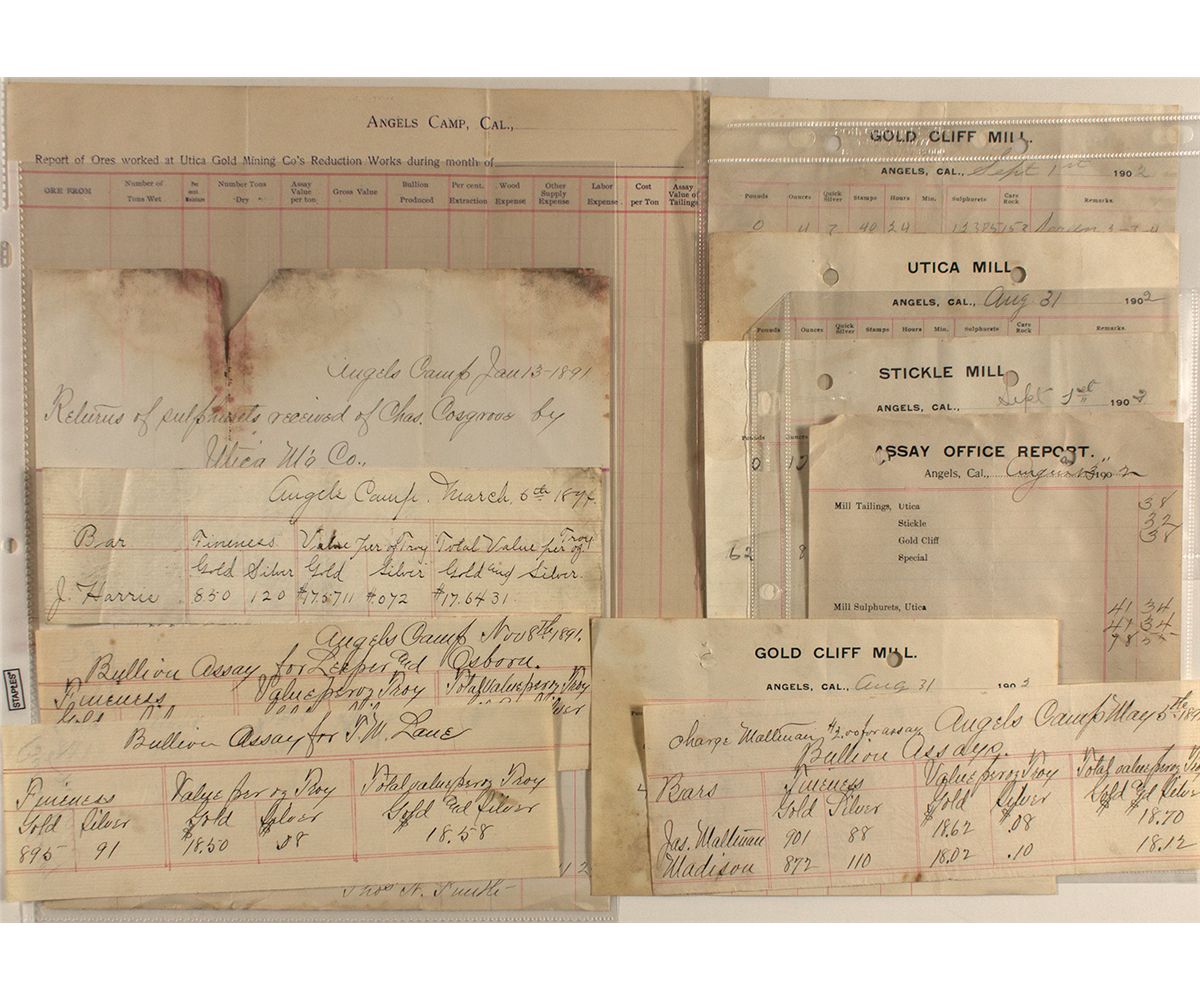 ANGELS CAMP, CAL.,
Report of Ores worked at Utica Gold Mining Co's Reduction Works during month of
ORE FROM Number of Tons Wet Per cent. Moisture Number Tons Dry Assay Value per ton Gross Value Bullion Produced Per cent. Extraction Wood Expense Other Supply Expense Labor Expense Cost per Ton Assay Value of Tailings
Angels Camp Jan 13-1891
Returns of sulphurets received of Chas. Cosgrove by
Utica M'g Co.,
Angels Camp. March 6th
Bar Fineness Value per oz Troy Total Value per oz Troy
Gold Silver Gold Silver Gold and Silver.
J. Harris 850 120 $17.5711 $.072 $17.6431
Angels Camp Nov 8th 1891.
Bullion Assay for Leeper and Osborn.
Fineness Value per oz Troy Total Value per oz Troy
Bullion Assay for T. W. Lane
Fineness Value per oz Troy Total value per oz Troy
Gold Silver Gold Silver Gold and Silver
895 91 $18.50 .08 $18.58
GOLD CLIFF MILL.
ANGELS, CAL., Sept 1st 1902
Pounds Ounces Quick Silver Stamps Hours Min. Sulphurets Cars Rock Remarks
0 4 7 40 24
UTICA MILL.
ANGELS, CAL., Aug 31 1902
Pounds Ounces Quick Silver Stamps Hours Min. Sulphurets Cars Rock Remarks.
STICKLE MILL.
ANGELS, CAL., Sept 1st 1902
Pounds Ounces
0
62 8
ASSAY OFFICE REPORT.
Angels, Cal., 1902
Mill Tailings, Utica 38
Stickle 32
Gold Cliff 38
Special
Mill Sulphurets, Utica 41 34
GOLD CLIFF MILL.
ANGELS, CAL., Aug 31 1902
Charge Maltman $2.00 for assay Angels Camp May 5th 189
Bullion Assays.
Bars Fineness Value per oz Troy Total value per oz
Gold Silver Gold Silver Gold and Silver
Jas. Maltman 901 88 $18.62 $.08 $18.70
Madison 872 110 18.02 .10 18.12
12
STAPLES